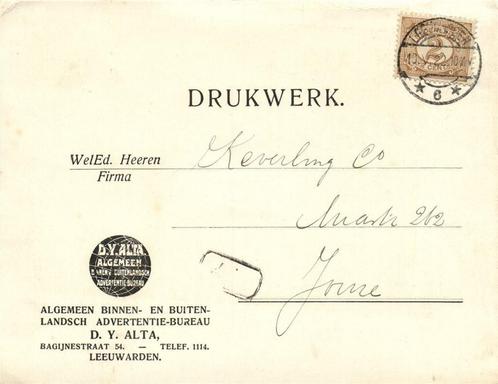 2
6
DRUKWERK.
WelEd. Heeren Keverling Co
Firma
Markt 262
Joure
D.Y. ALTA
ALGEMEEN
BINNEN & BUITENLANDSCH
ADVERTENTIE-BUREAU
ALGEMEEN BINNEN- EN BUITEN-
LANDSCH ADVERTENTIE-BUREAU
D. Y. ALTA,
BAGIJNESTRAAT 54. — TELEF. 1114.
LEEUWARDEN.